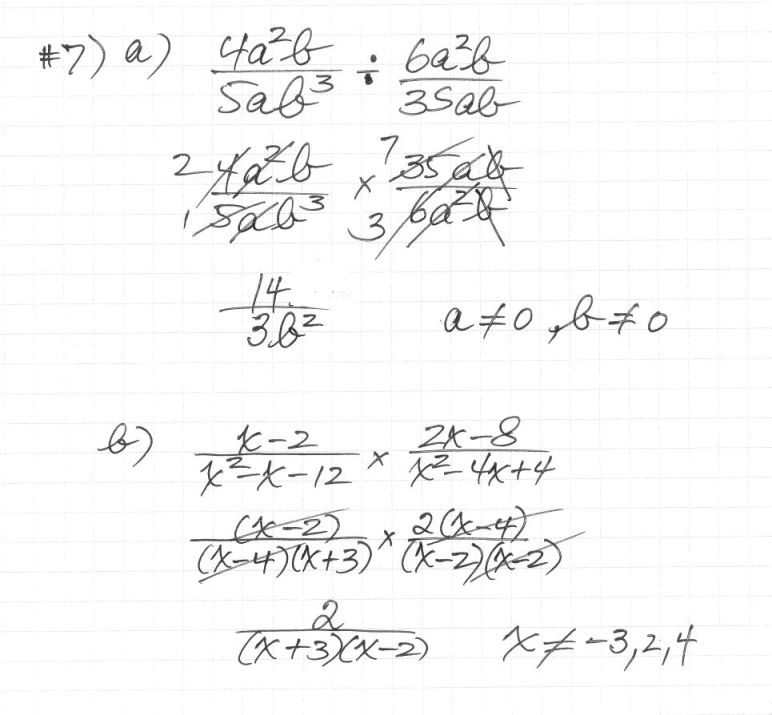 #7) a) 4a²b/5ab³ ÷ 6a²b/35ab
2 4a²b/1 5ab³ × 7 35ab/3 6a²b
14/3b² a≠0, b≠0
b) x-2/x²-x-12 × 2x-8/x²-4x+4
(x-2)/(x-4)(x+3) × 2(x-4)/(x-2)(x-2)
2/(x+3)(x-2) x≠-3,2,4